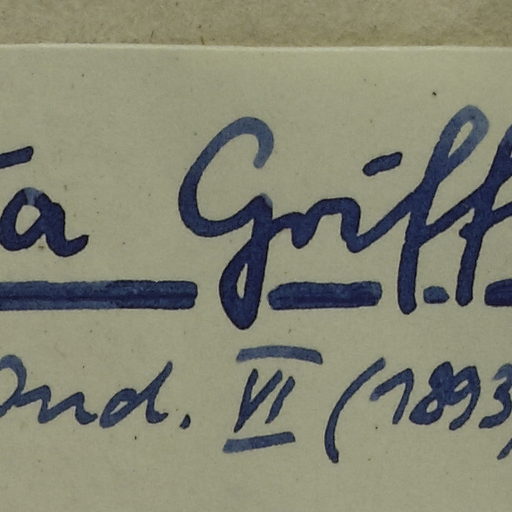 a Griff
Ind. VI (1893